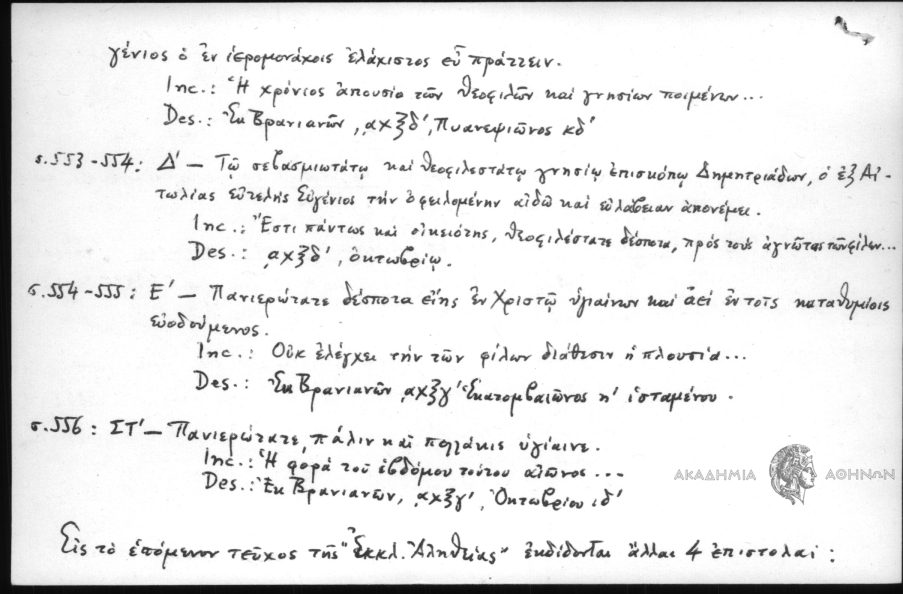 γένιος ὁ ἐν ἱερομονάχοις ἐλάχιστος εὖ πράττειν.
Inc.: Ἡ χρόνιος ἀπουσία τῶν θεοφιλῶν καὶ γνησίων ποιμένων...
Des.: Ἐκ Βρανιανῶν, ͵αχξδ', Πυανεψιῶνος κδ'
σ.553-554: Δ' – Τῷ σεβασμιωτάτῳ καὶ θεοφιλεστάτῳ γνησίῳ ἐπισκόπῳ Δημητριάδων, ὁ ἐξ Αἰ-
τωλίας εὐτελὴς Εὐγένιος τὴν ὀφειλομένην αἰδῶ καὶ εὐλάβειαν ἀπονέμει.
Inc.: Ἔστι πάντως καὶ οἰκειότης, θεοφιλέστατε δέσποτα, πρὸς τοὺς ἀγνῶτας τῶν φίλων...
Des.: ͵αχξδ', ὀκτωβρίῳ.
σ.554-555: Ε' – Πανιερώτατε δέσποτα εἴης ἐν Χριστῷ ὑγιαίνων καὶ ἀεὶ ἐν τοῖς καταθυμίοις
εὐοδούμενος.
Inc.: Οὐκ ἐλέγχει τὴν τῶν φίλων διάθεσιν ἡ πλουσία...
Des.: Ἐκ Βρανιανῶν ͵αχξγ' Ἑκατομβαιῶνος η' ἱσταμένου.
σ.556: ΣΤ' – Πανιερώτατε, πάλιν καὶ πολλάκις ὑγίαινε.
Inc.: Ἡ φορὰ τοῦ ἑβδόμου τούτου αἰῶνος...
Des.: Ἐκ Βρανιανῶν, ͵αχξγ', Ὀκτωβρίου ιδ'
ΑΚΑΔΗΜΙΑ ΑΘΗΝΩΝ
Εἰς τὸ ἑπόμενον τεῦχος τῆς "Ἐκκλ. Ἀληθείας" ἐκδίδονται ἄλλαι 4 ἐπιστολαί: